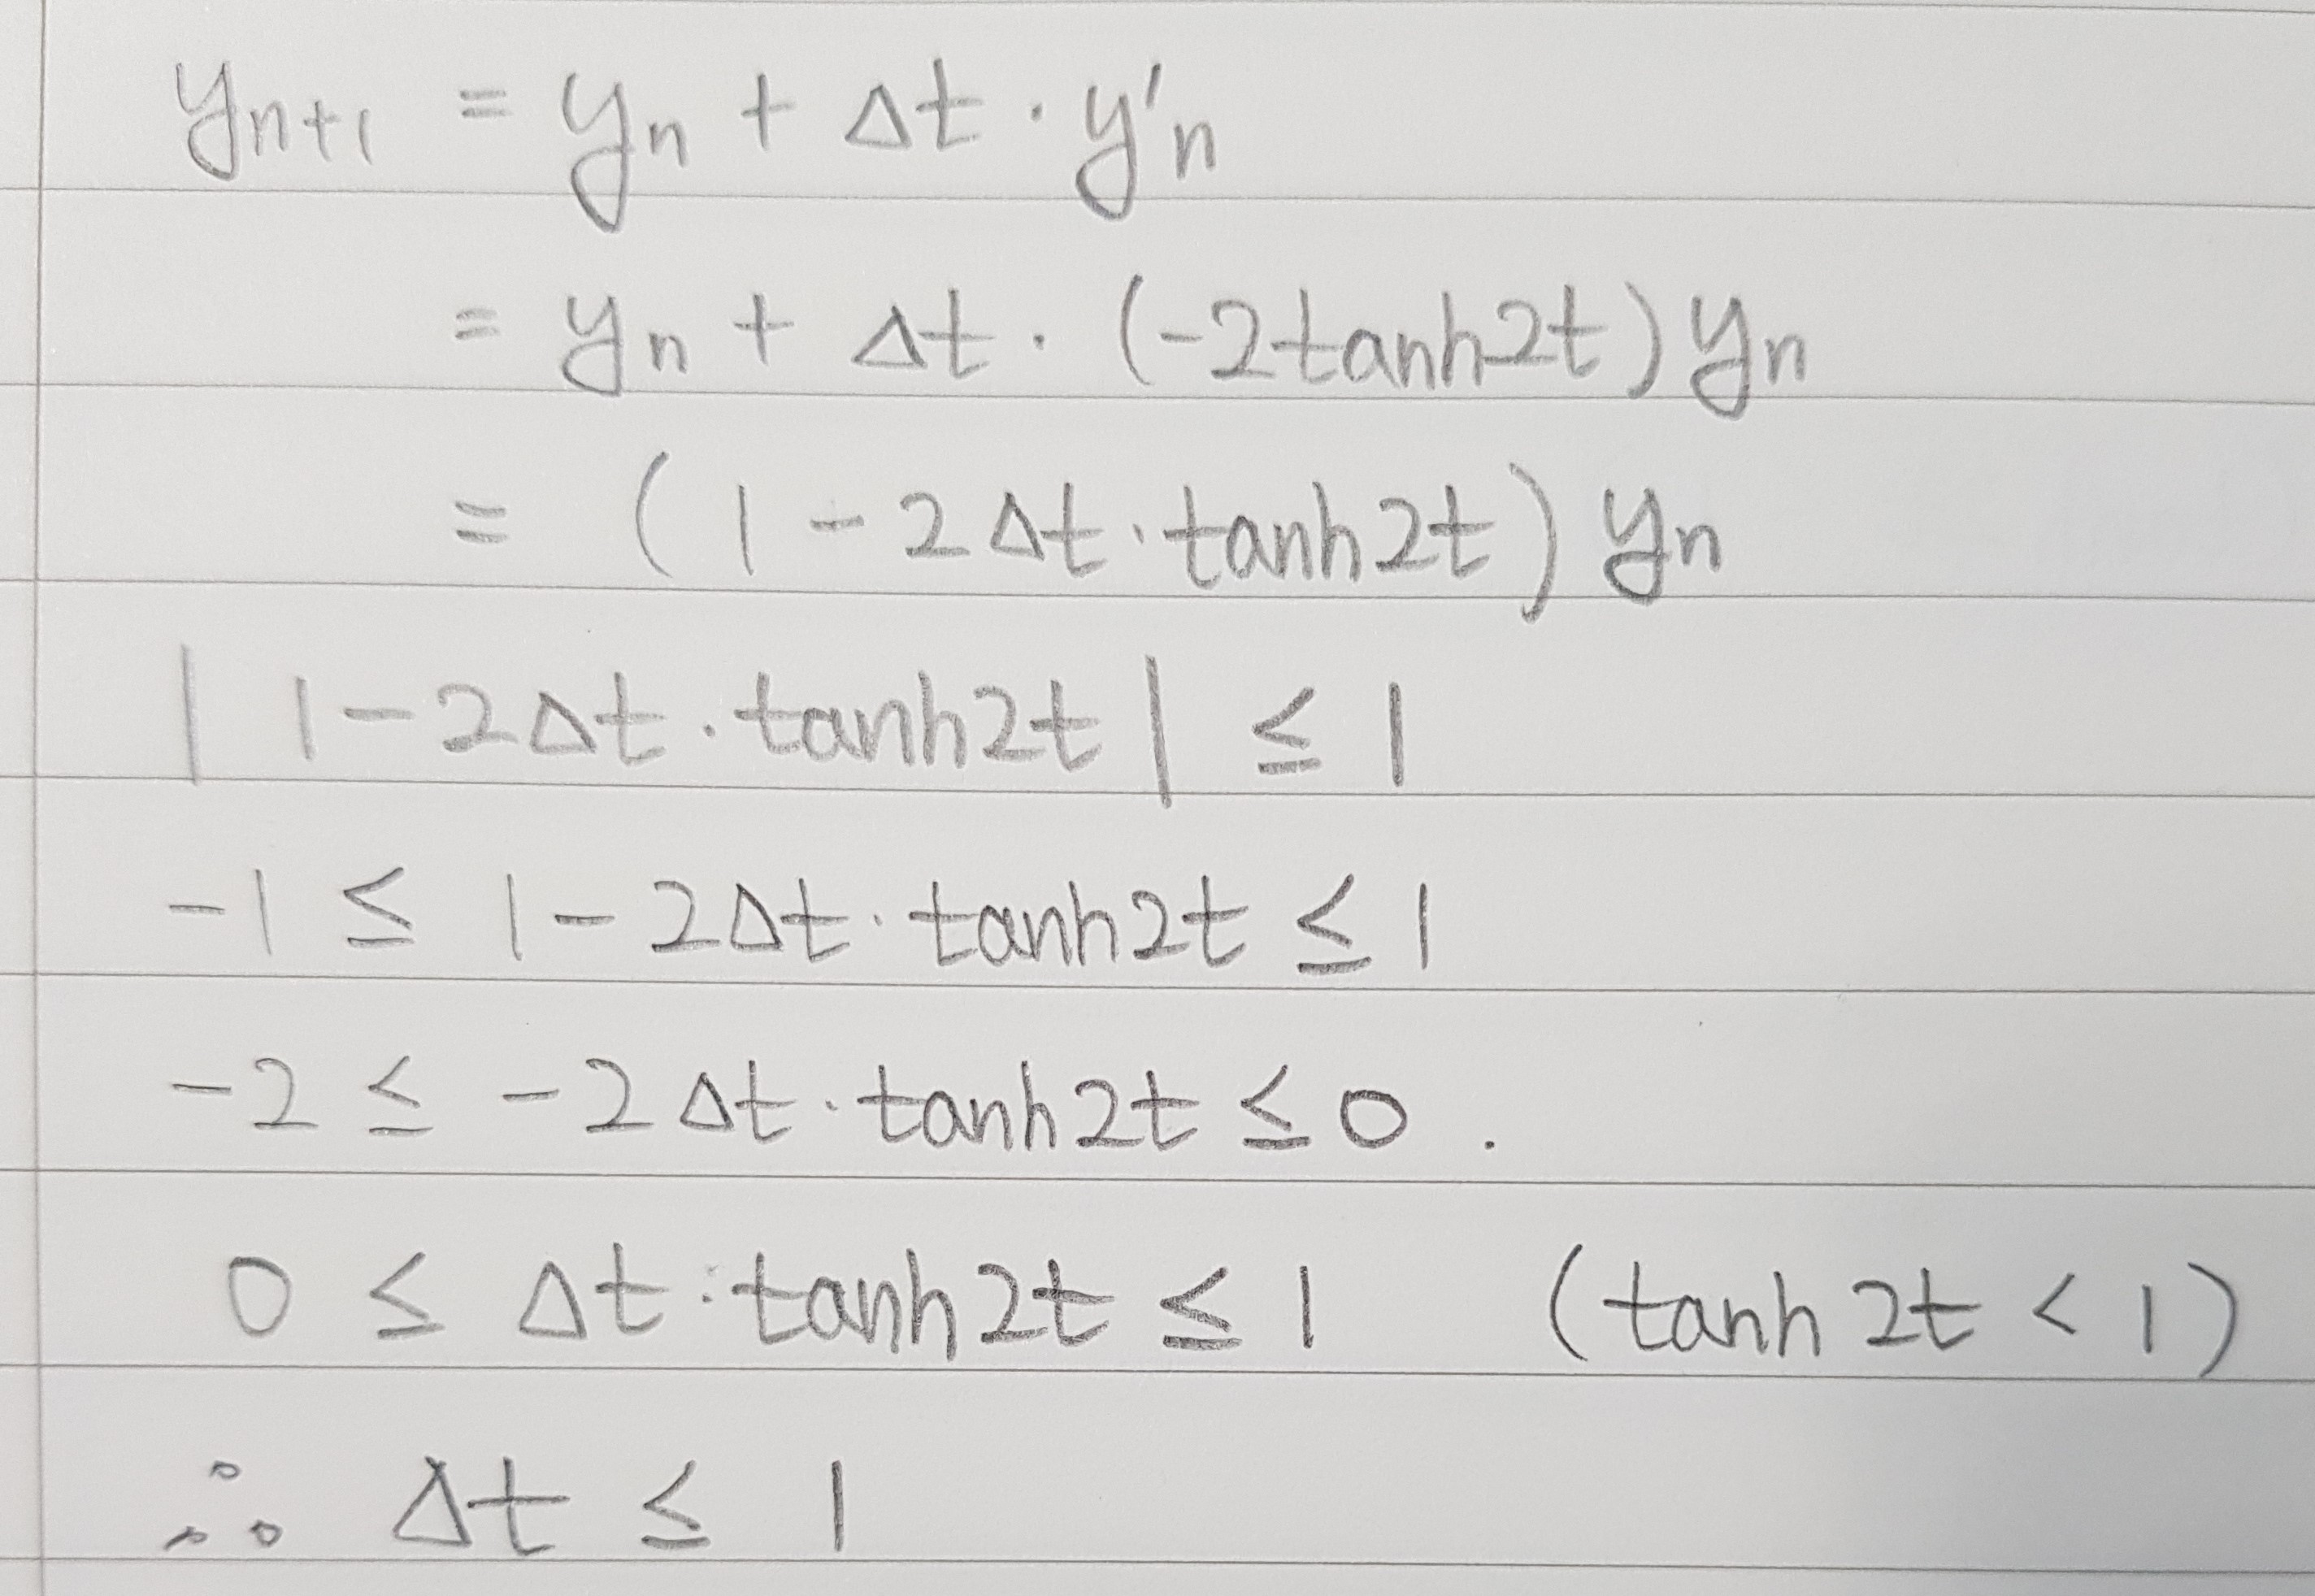 yₙ₊₁ = yₙ + Δt · y'ₙ
= yₙ + Δt · (-2tanh2t) yₙ
= (1 - 2Δt · tanh2t) yₙ
| 1 - 2Δt · tanh2t | ≤ 1
-1 ≤ 1 - 2Δt · tanh2t ≤ 1
-2 ≤ -2Δt · tanh2t ≤ 0 .
0 ≤ Δt · tanh2t ≤ 1 (tanh 2t < 1)
∴ Δt ≤ 1